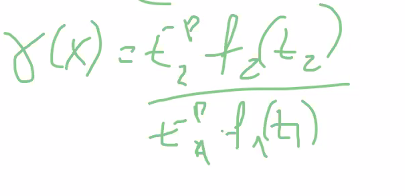 γ(x) = t₂⁻ᵖ f₂(t₂)
t₁⁻ᵖ · f₁(t₁)